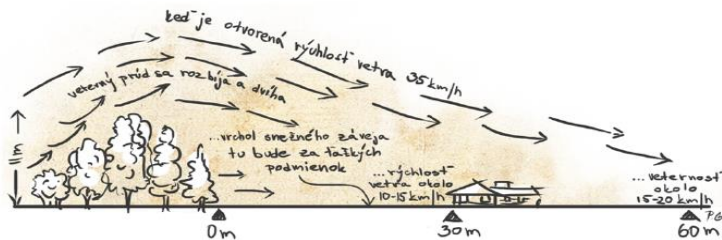 keď je otvorená rýchlosť vetra 35 km/h
veterný prúd sa rozbíja a dvíha
11m
...vrchol snežného záveja
tu bude za ťažkých
podmienok
...rýchlosť
vetra okolo
10-15 km/h
...veternosť
okolo
15-20 km/h
PG
0m
30m
60m